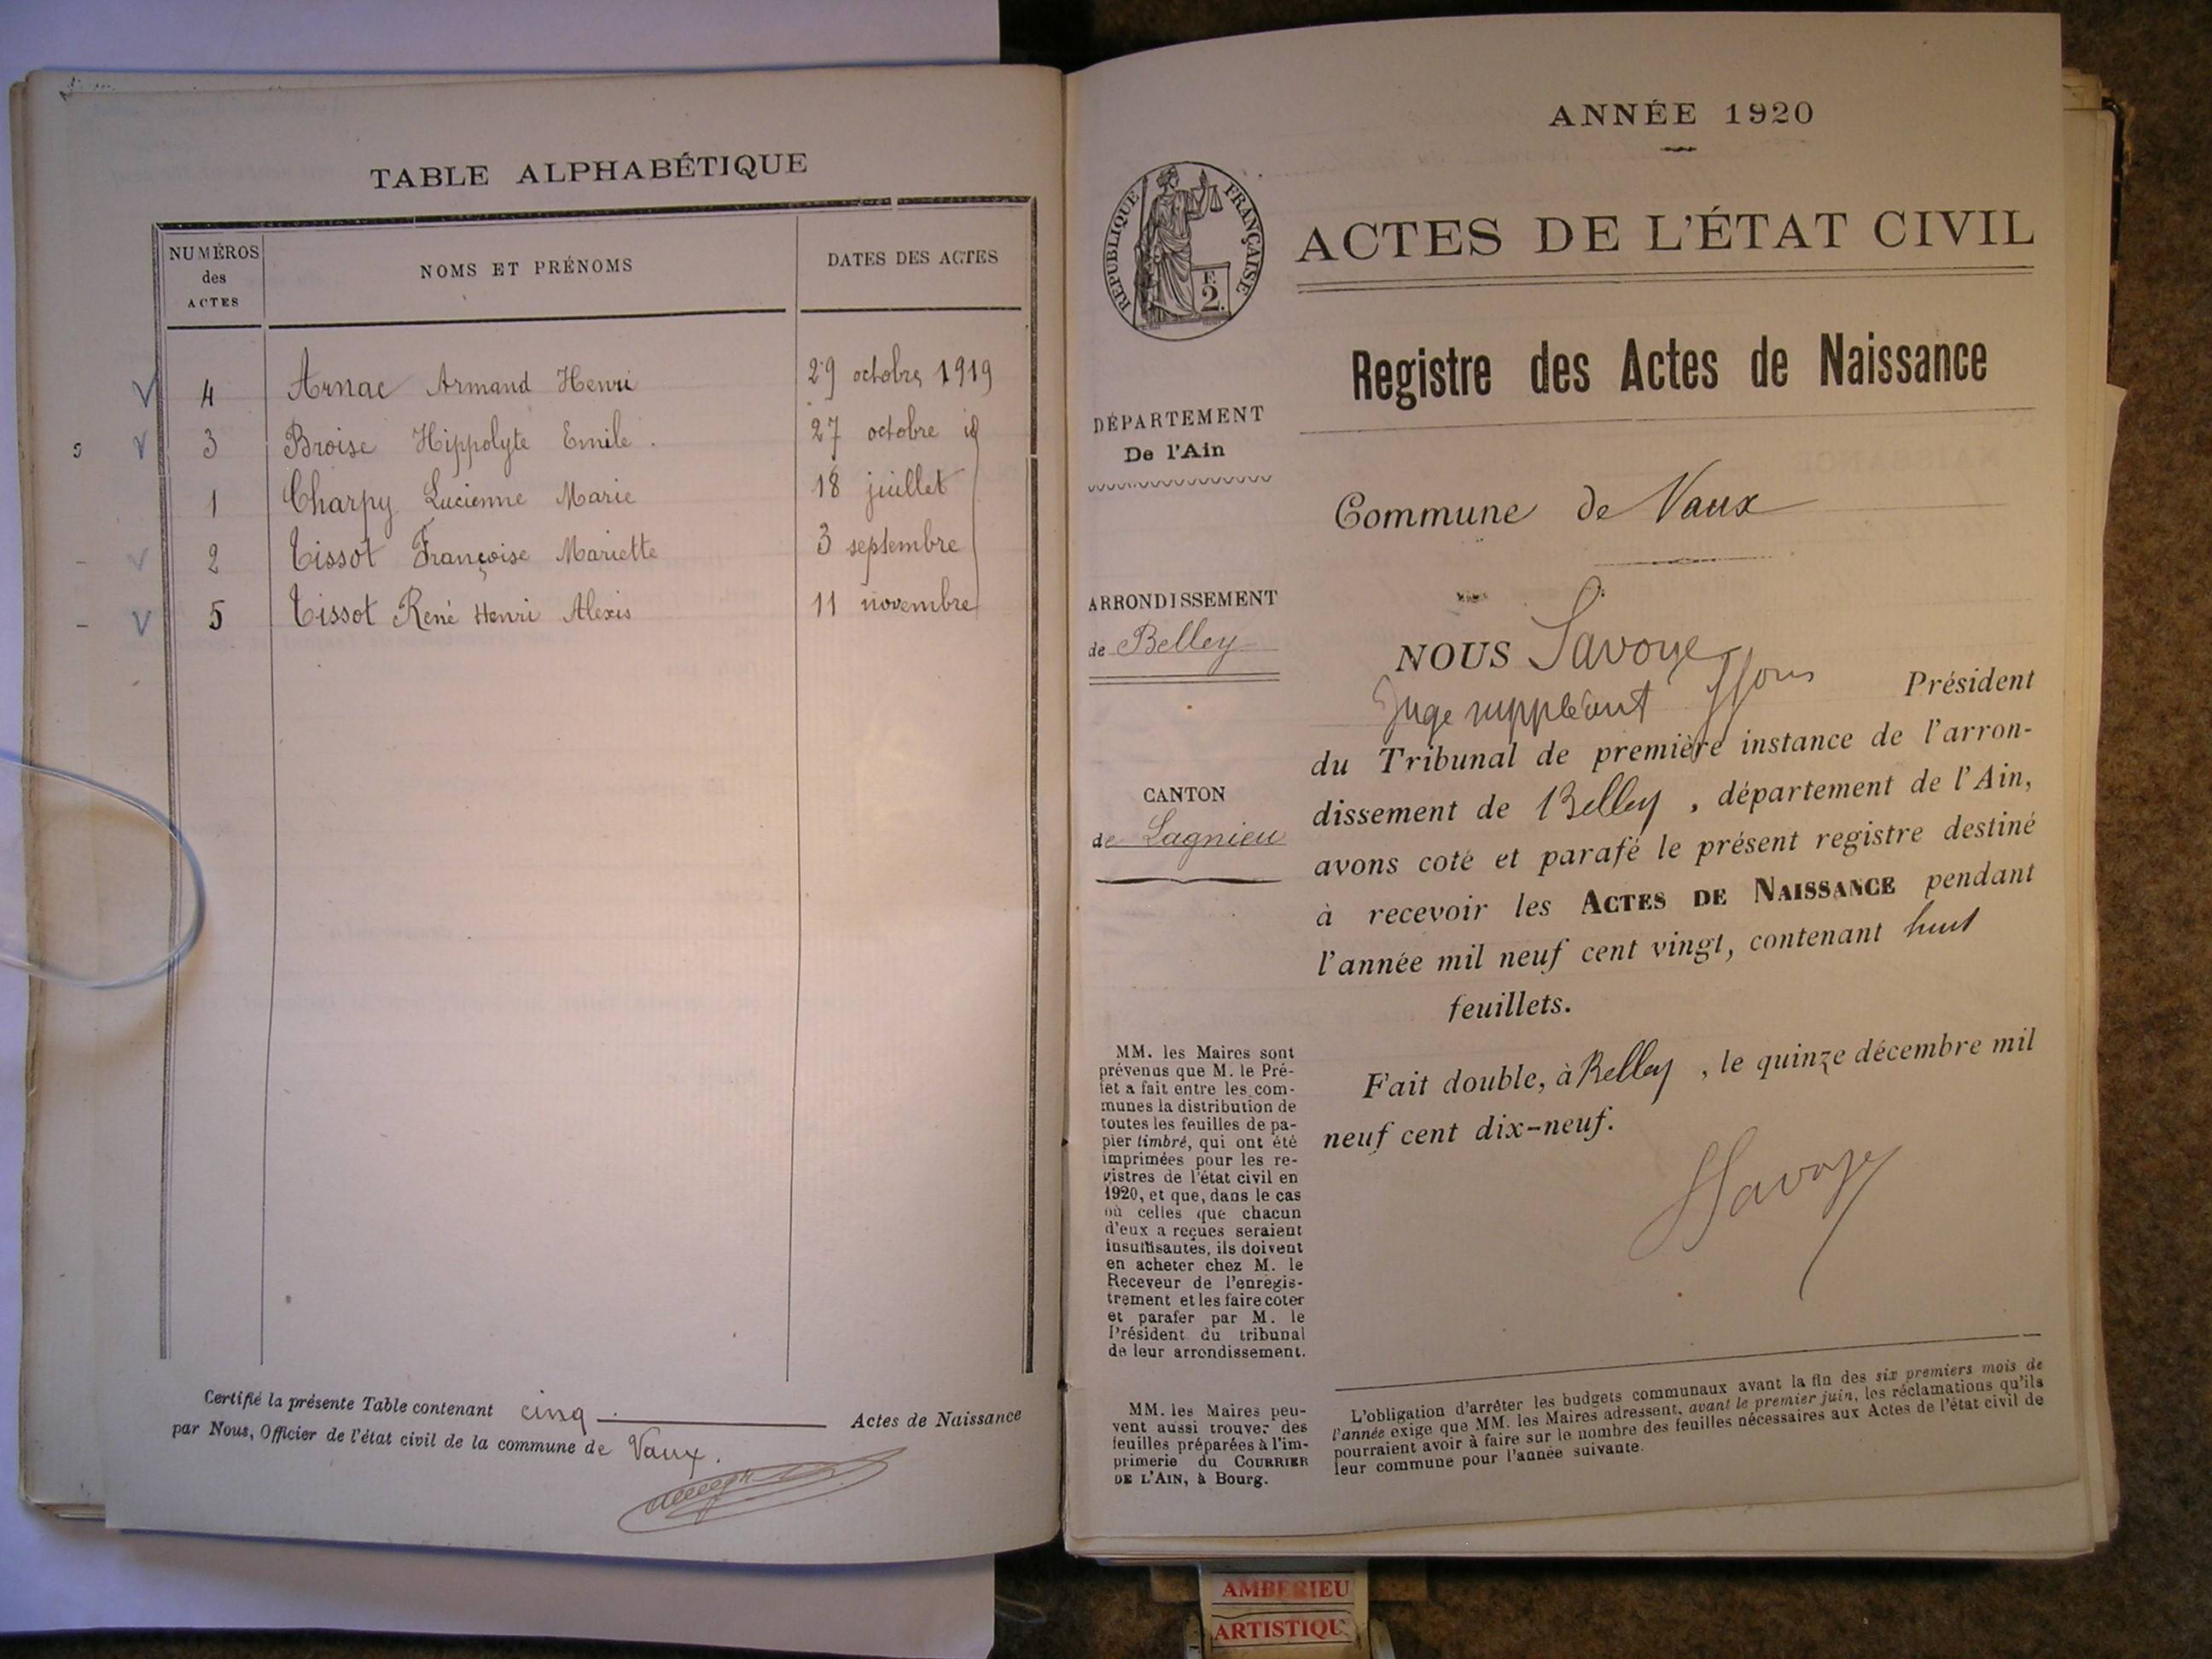 TABLE ALPHABÉTIQUE
NUMÉROS
des
ACTES
NOMS ET PRÉNOMS
DATES DES ACTES
4 Arnac Armand Henri 29 octobre 1919
3 Broise Hippolyte Emile . 27 octobre id
1 Charpy Lucienne Marie 18 juillet
2 Tissot Françoise Mariette 3 septembre
5 Tissot René Henri Alexis 11 novembre
Certifié la présente Table contenant cinq Actes de Naissance
par Nous, Officier de l'état civil de la commune de Vaux.
ANNÉE 1920
RÉPUBLIQUE FRANÇAISE
F.
2.
ACTES DE L'ÉTAT CIVIL
Registre des Actes de Naissance
DÉPARTEMENT
De l'Ain
Commune de Vaux
ARRONDISSEMENT
de Belley
CANTON
de Lagnieu
NOUS Savoye
Juge suppléant Président
du Tribunal de première instance de l'arron-
dissement de Belley , département de l'Ain,
avons coté et parafé le présent registre destiné
à recevoir les ACTES DE NAISSANCE pendant
l'année mil neuf cent vingt, contenant huit
feuillets.
Fait double, à Belley , le quinze décembre mil
neuf cent dix-neuf.
Savoye
MM. les Maires sont
prévenus que M. le Pré-
fet a fait entre les com-
munes la distribution de
toutes les feuilles de pa-
pier timbré, qui ont été
imprimées pour les re-
gistres de l'état civil en
1920, et que, dans le cas
où celles que chacun
d'eux a reçues seraient
insuffisantes, ils doivent
en acheter chez M. le
Receveur de l'enregis-
trement et les faire coter
et parafer par M. le
Président du tribunal
de leur arrondissement.
MM. les Maires peu-
vent aussi trouver des
feuilles préparées à l'im-
primerie du COURRIER
DE L'AIN, à Bourg.
L'obligation d'arrêter les budgets communaux avant la fin des six premiers mois de
l'année exige que MM. les Maires adressent, avant le premier juin, les réclamations qu'ils
pourraient avoir à faire sur le nombre des feuilles nécessaires aux Actes de l'état civil de
leur commune pour l'année suivante.
AMBERIEU
ARTISTIQU